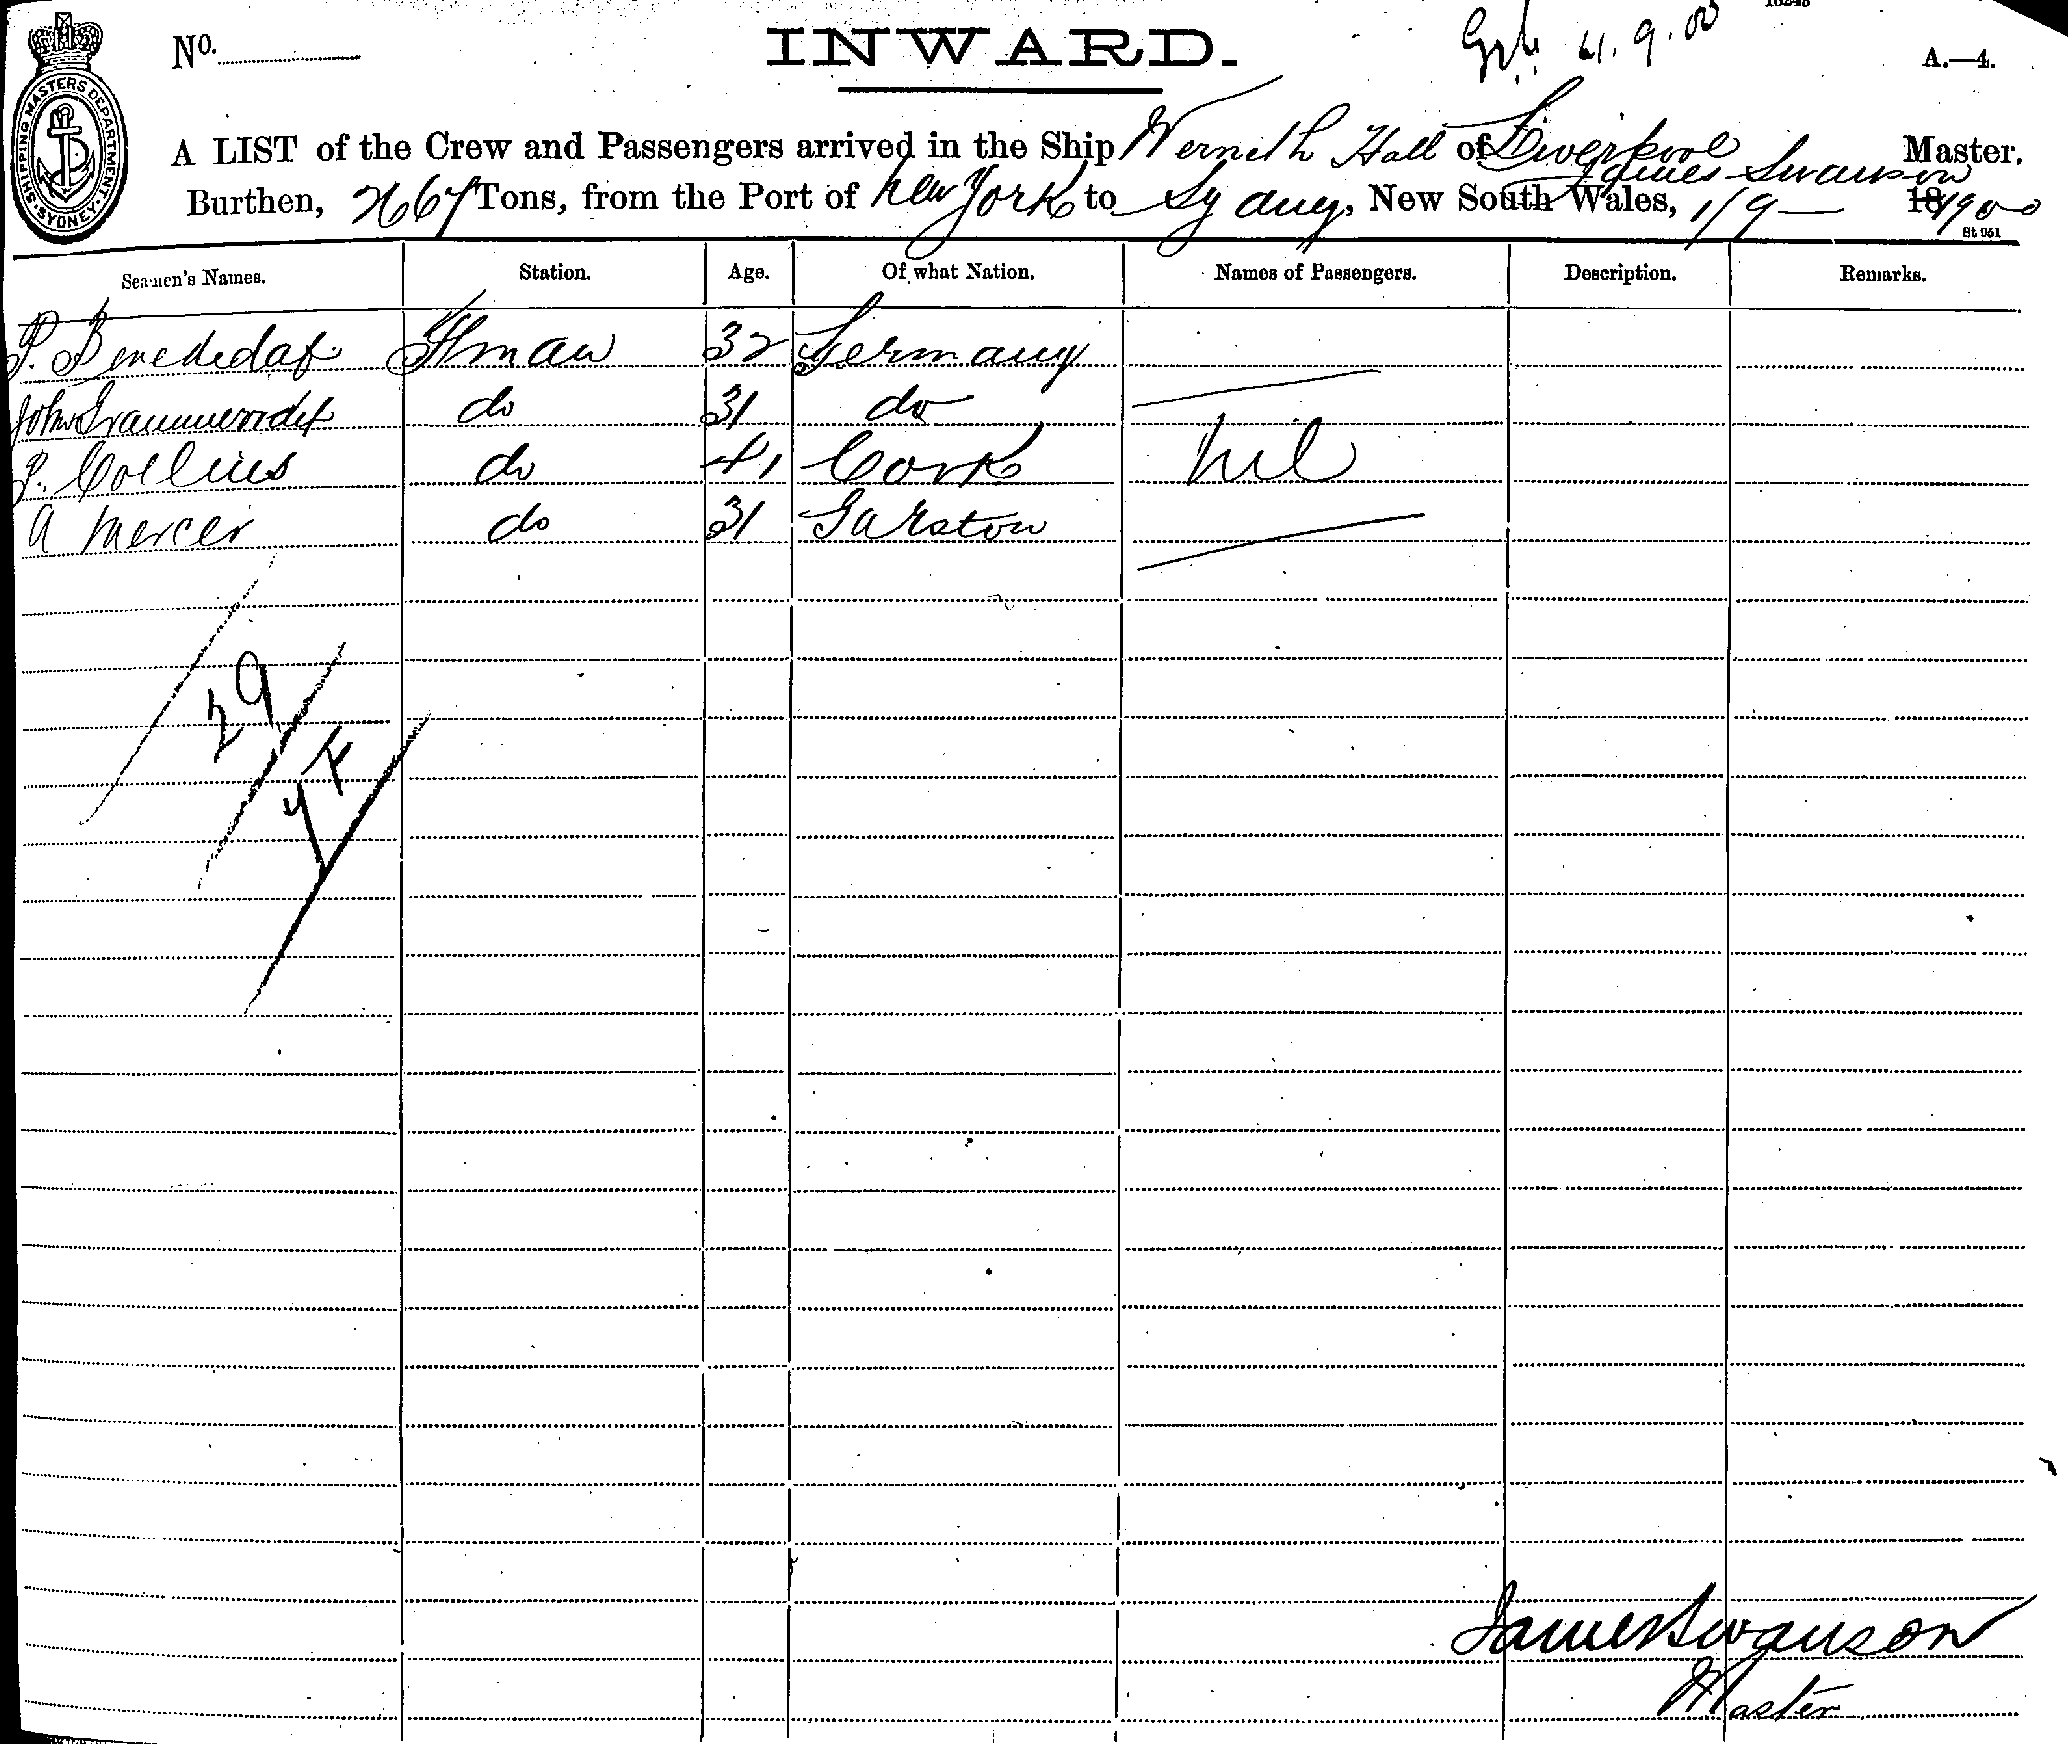 INWARD.
No.
4.9.00
A.—4.
SHIPPING MASTERS DEPARTMENT SYDNEY
A LIST of the Crew and Passengers arrived in the Ship Werneth Hall of Liverpool James Swanson Master.
Burthen, 2667 Tons, from the Port of New York to Sydney, New South Wales, 1/9 — 18 1900
Seamen's Names. Station. Age. Of what Nation. Names of Passengers. Description. Remarks.
P. Fman 32 Germany
John do 31 do
P. Collins do 41 Cork Nil
A Mercer do 31 Garston
29
James Swanson
Master